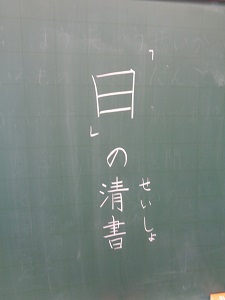 「目」の清書
せいしょ